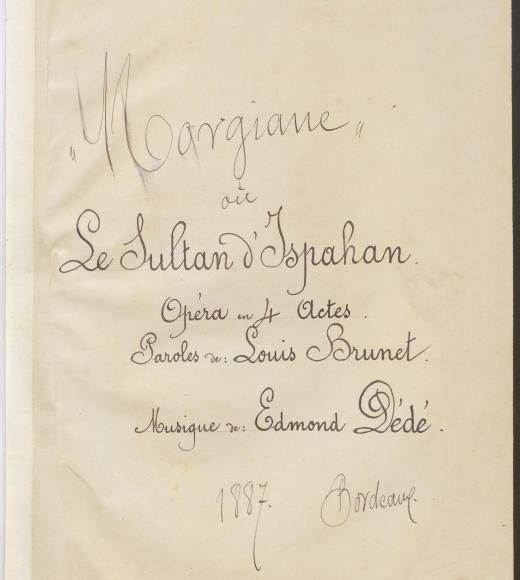 "Morgiane"
où
Le Sultan d'Ispahan.
Opéra en 4 Actes.
Paroles de: Louis Brunet.
Musique de: Edmond Dédé.
1887. Bordeaux.